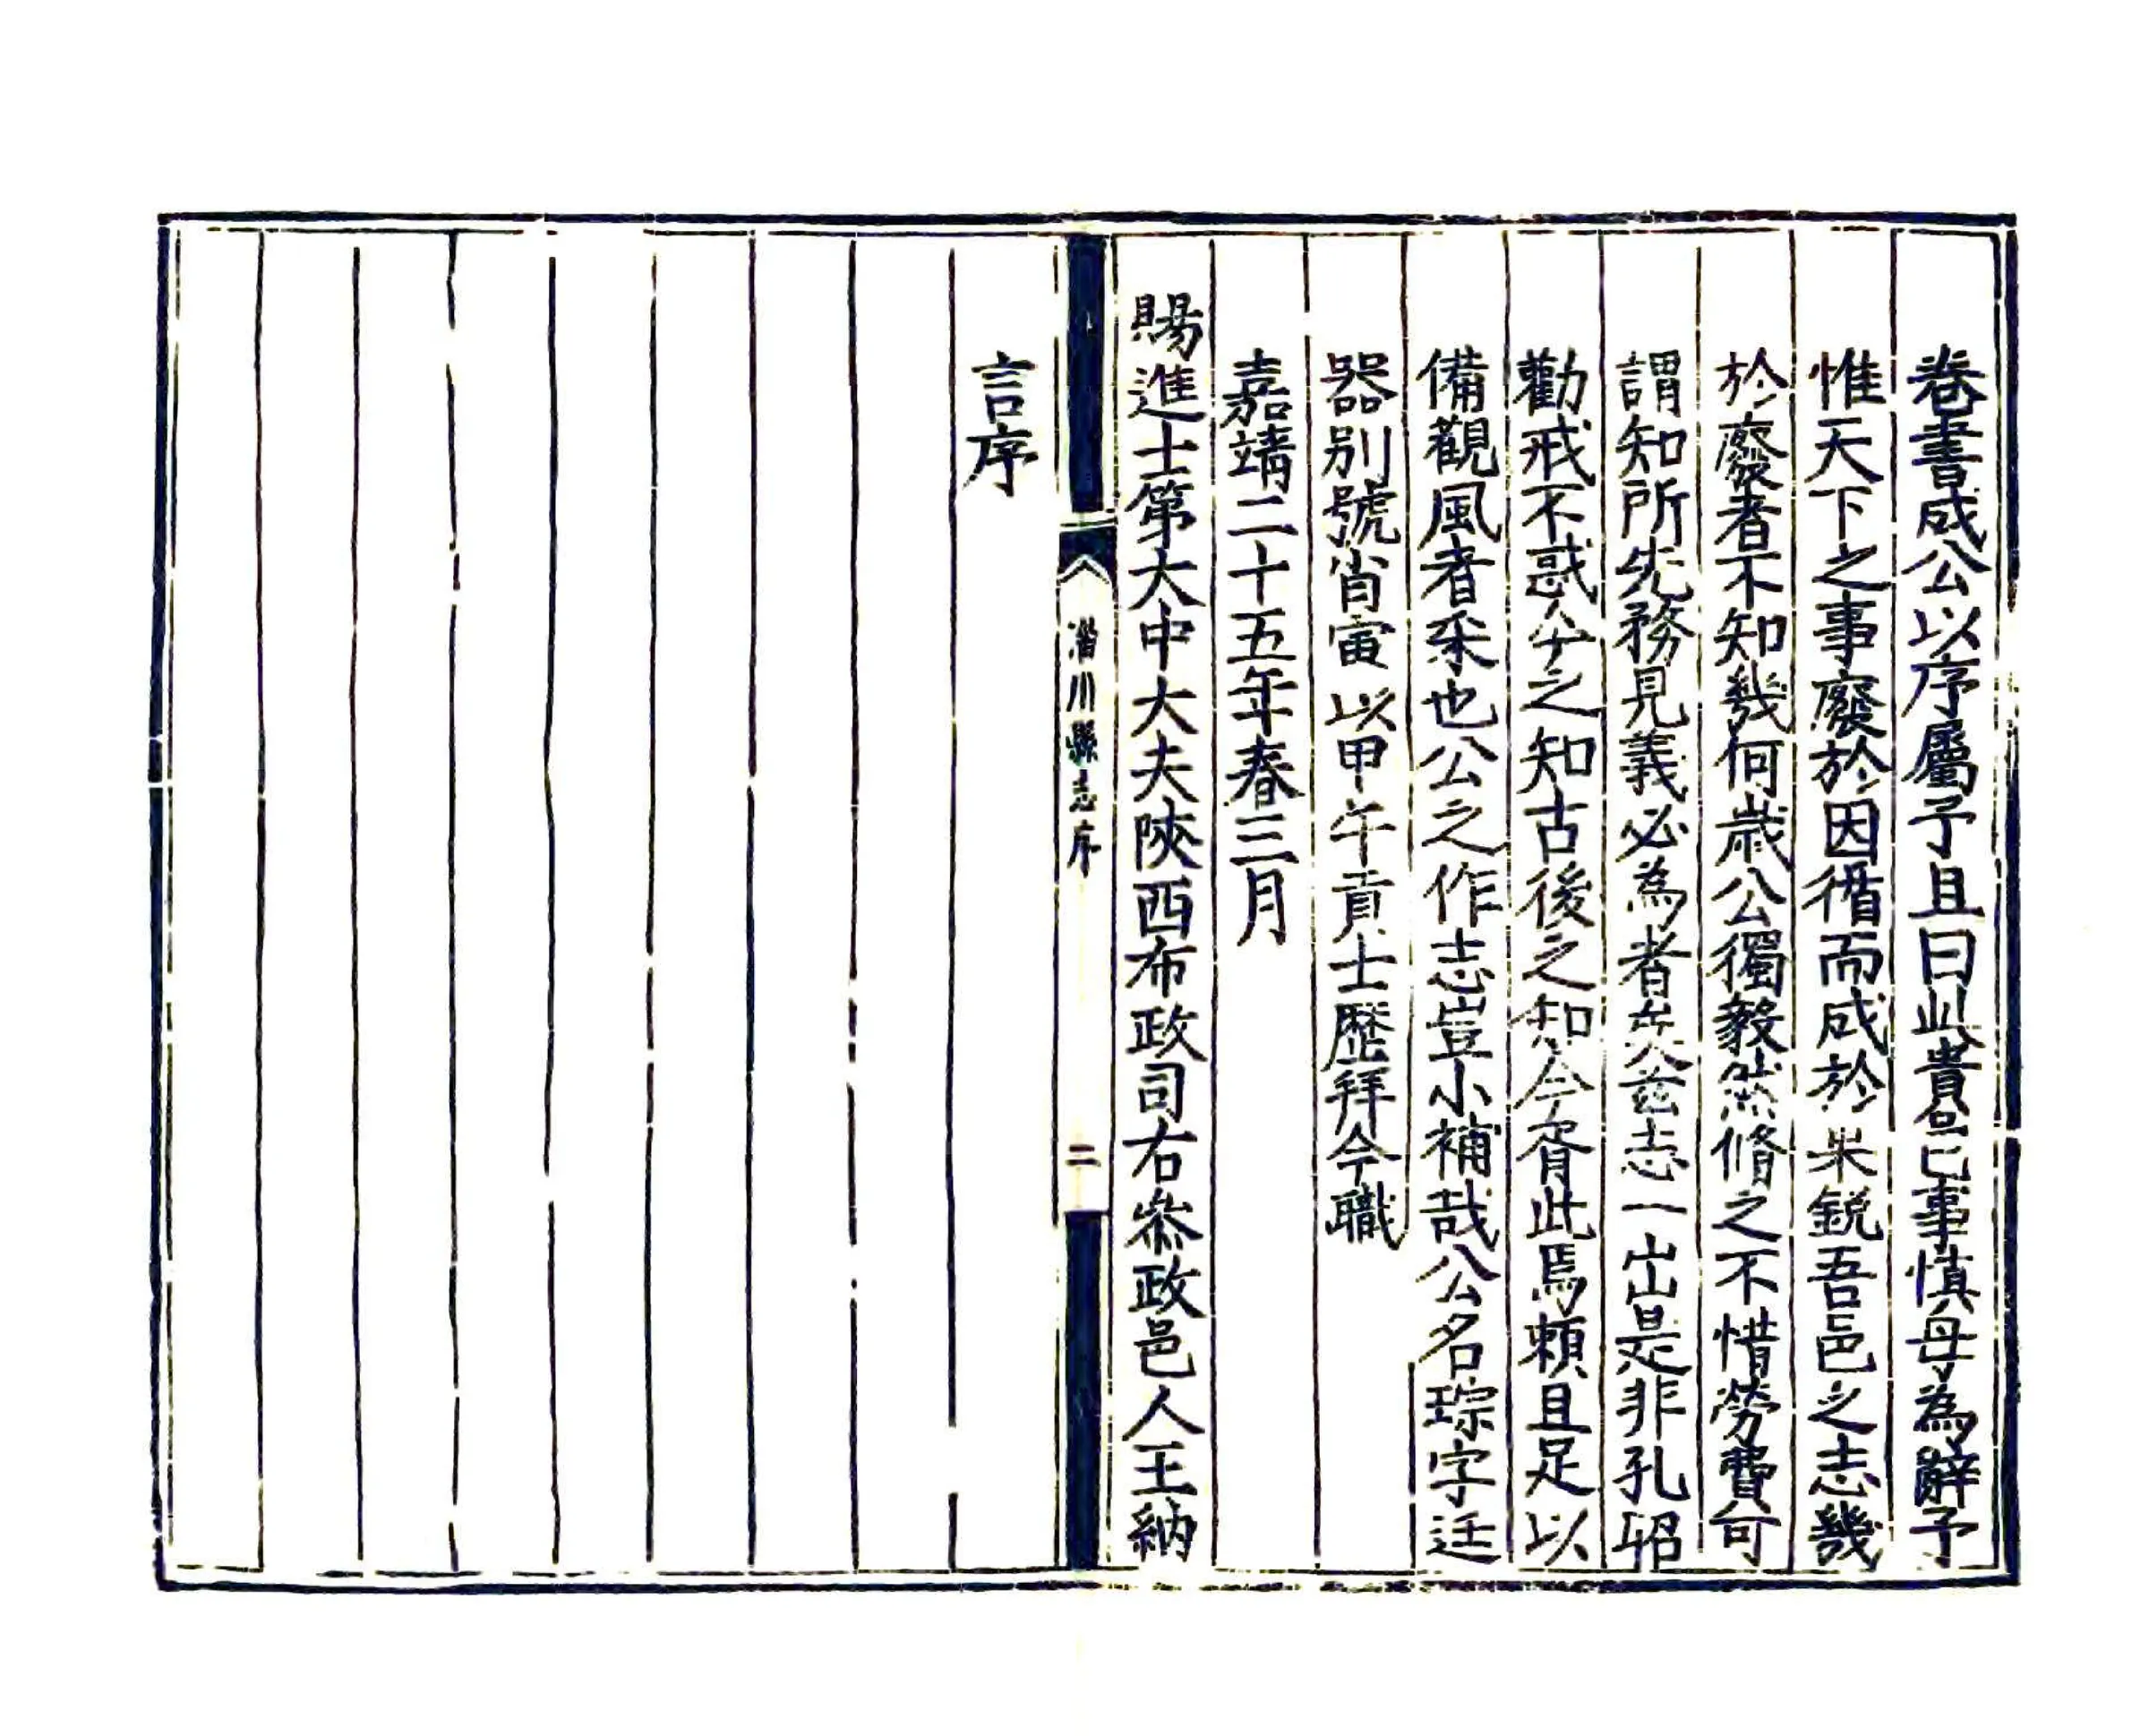 卷書成公以序屬予且曰此貴邑事慎毋為辭予
惟天下之事廢於因循而成於果銳吾邑之志幾
於廢者不知幾何歲公獨毅然脩之不惜勞費可
謂知所先務見義必為者矣茲志一出是非孔昭
勸戒不惑今之知古後之知今胥此焉賴且足以
備觀風者采也公之作志豈小補哉公名琮字廷
器別號肖寅以甲午貢士歷拜今職
嘉靖二十五年春三月
賜進士第大中大夫陝西布政司右叅政邑人王納
淄川縣志序
二
言序